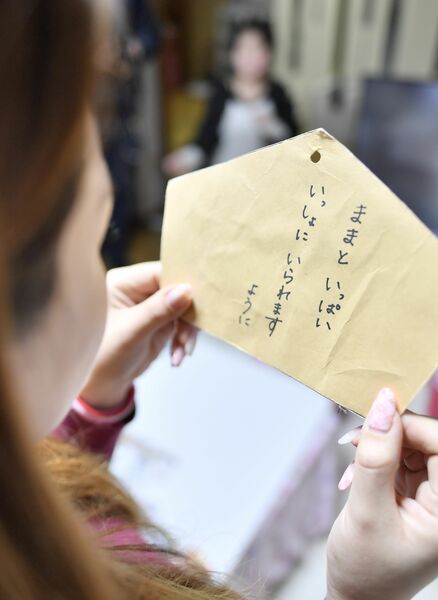 ままと いっぱい
いっしょに いられます
ように